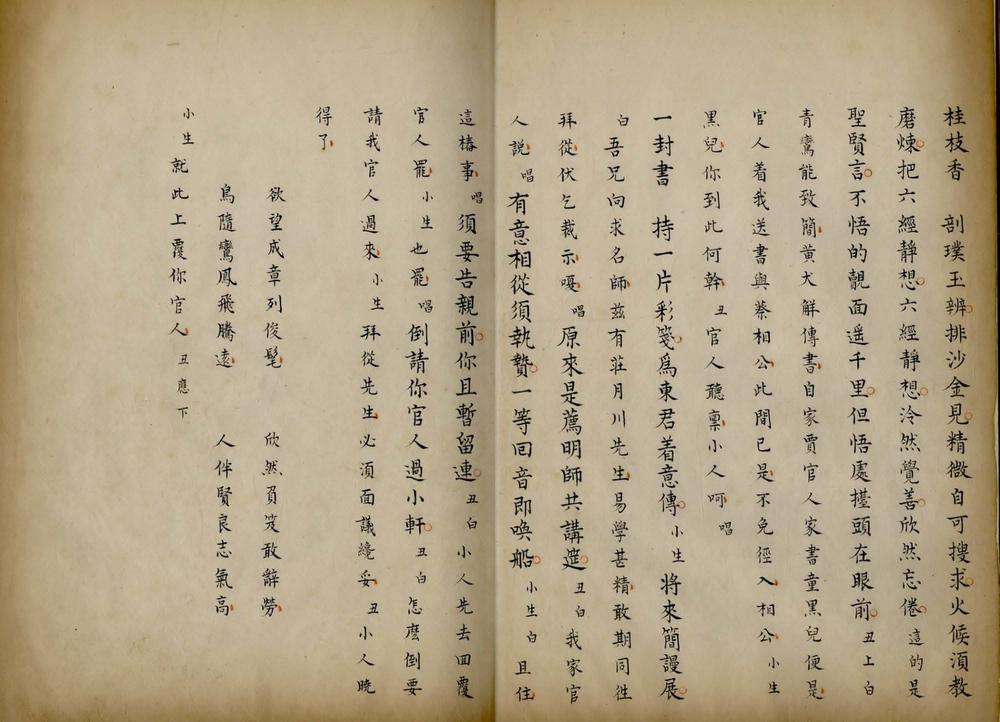 桂枝香　剖璞玉辨排沙金見精微自可搜求火候須教
磨煉把六經靜想六經靜想泠然覺善欣然忘倦這的是
聖賢言不悟的覿面遥千里但悟處擡頭在眼前丑上白
青鸞能致簡黃犬解傳書自家賈官人家書童黑兒便是
官人着我送書與蔡相公此間已是不免徑入相公小生
黑兒你到此何幹丑官人聽稟小人呵唱
一封書　持一片彩箋爲東君着意傳小生將來簡謾展
白吾兄向求名師茲有莊月川先生易學甚精敢期同徃
拜從伏乞裁示嗄唱原來是薦明師共講筵丑白我家官
人説唱有意相從須執贄一等回音即喚船小生白且住
這樁事唱須要告親前你且暫留連丑白小人先去回覆
官人罷小生也罷唱倒請你官人過小軒丑白怎麽倒要
請我官人過來小生拜從先生必須面議纔妥丑小人曉
得了
欲望成章列俊髦　欣然負笈敢辭勞
鳥隨鸞鳳飛騰遠　人伴賢良志氣高
小生就此上覆你官人丑應下